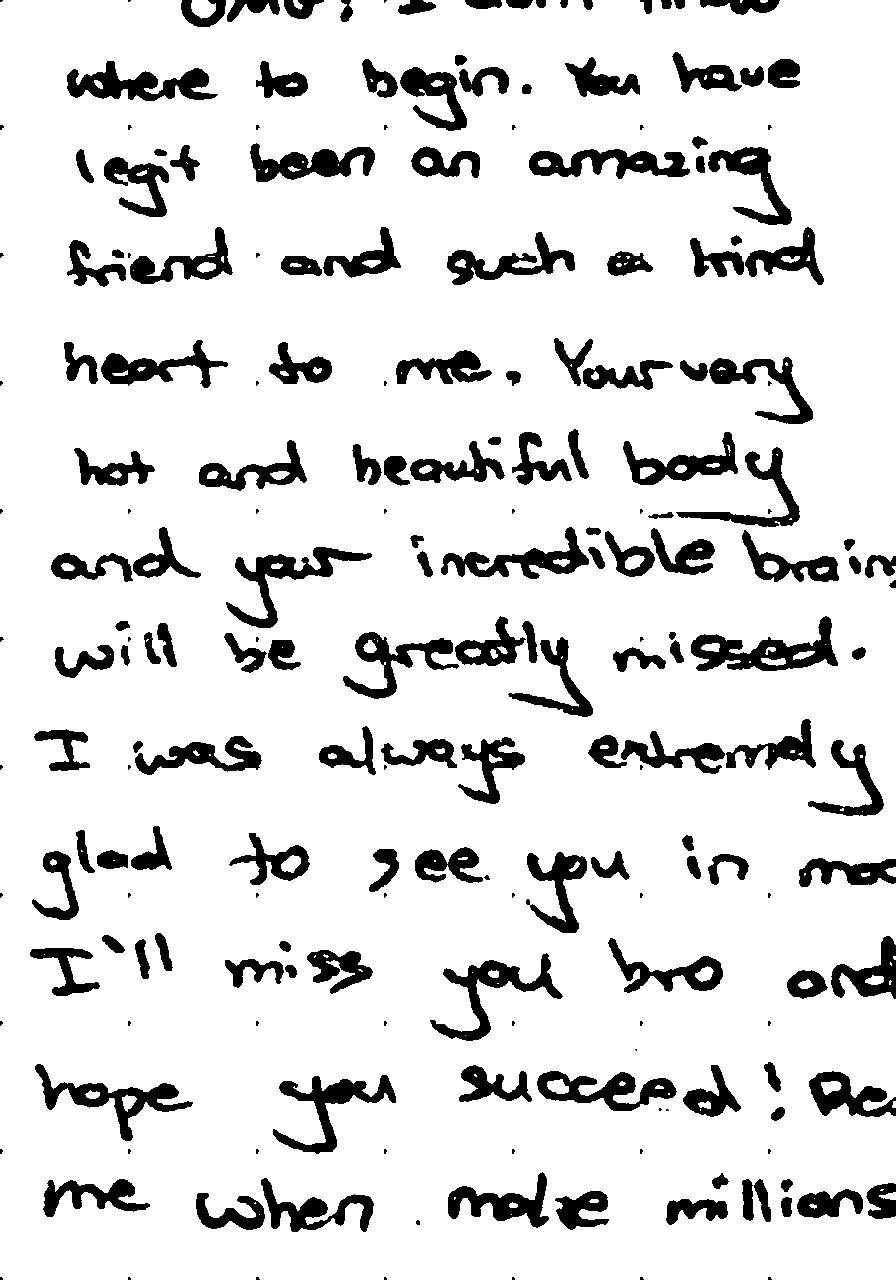 I don't know
where to begin. You have
legit been an amazing
friend and such a kind
heart to me. Your very
hot and beautiful body
and your incredible brain
will be greatly missed.
I was always extremely
glad to see you in
I'll miss you bro and
hope you succeed!
me when make millions